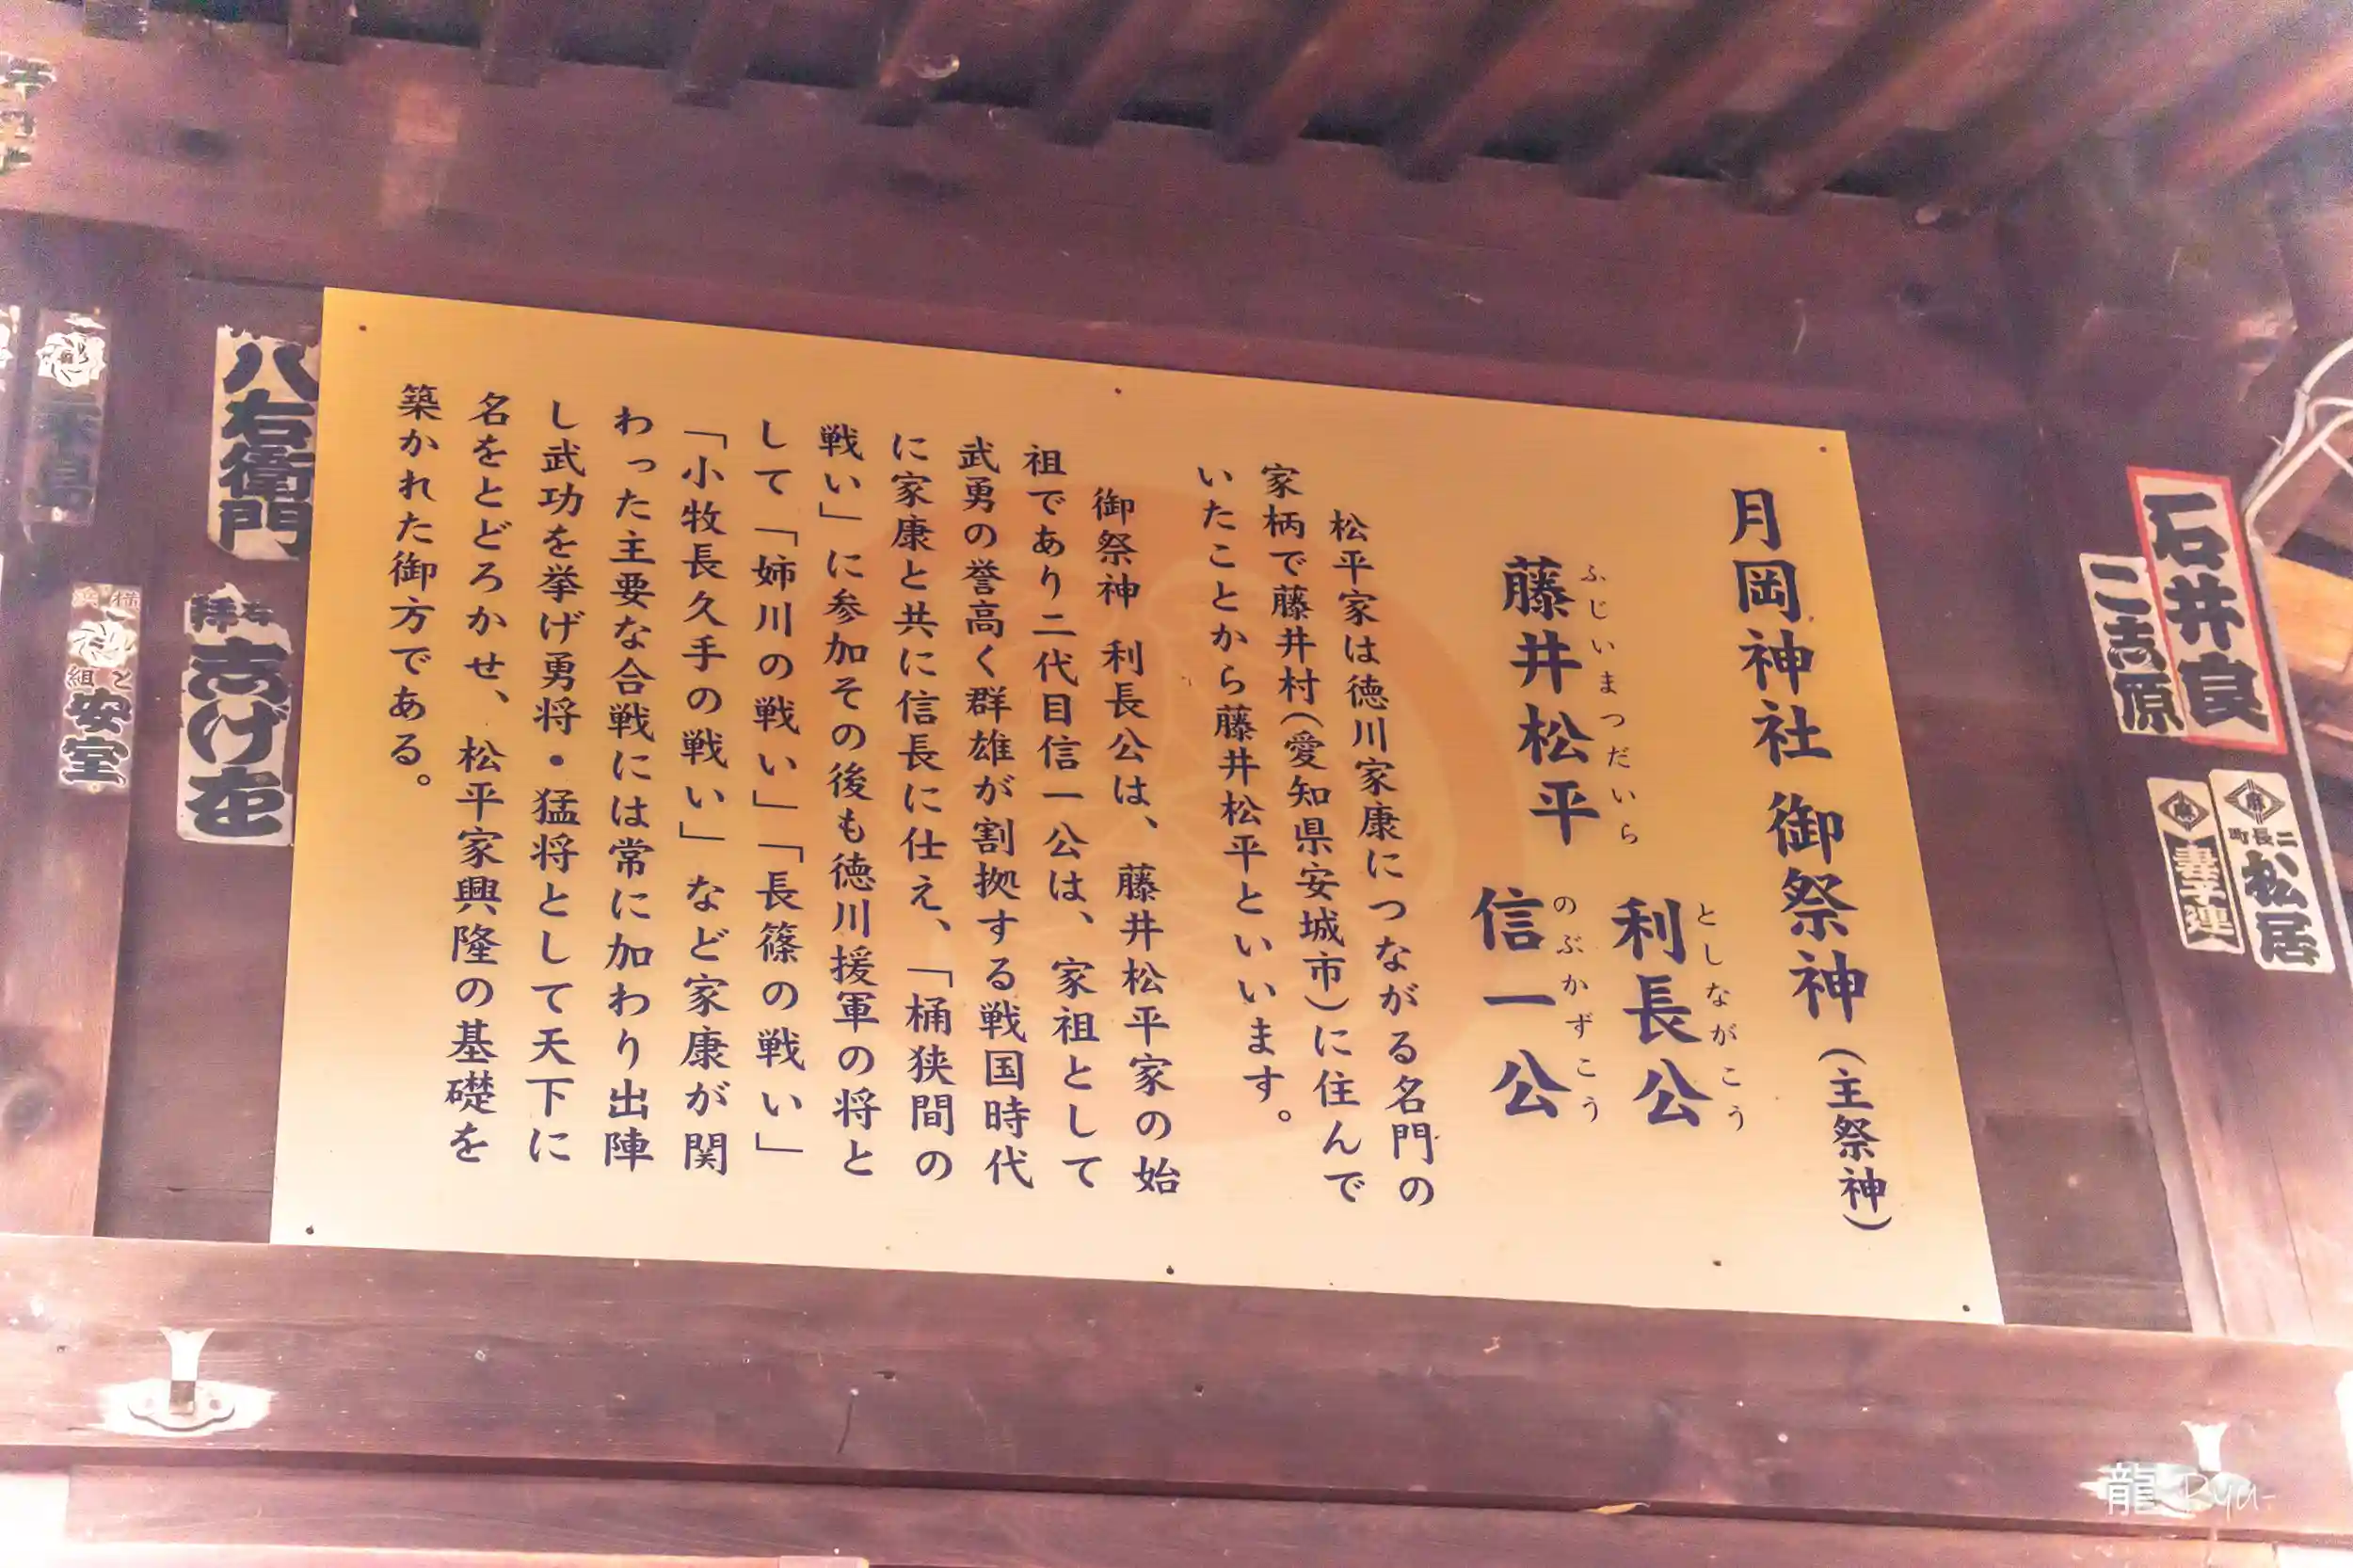 月岡神社 御祭神（主祭神）
としながこう
利長公
ふじいまつだいら
藤井松平
のぶかずこう
信一公
松平家は徳川家康につながる名門の
家柄で藤井村（愛知県安城市）に住んで
いたことから藤井松平といいます。
御祭神 利長公は、藤井松平家の始
祖であり二代目信一公は、家祖として
武勇の誉高く群雄が割拠する戦国時代
に家康と共に信長に仕え、「桶狭間の
戦い」に参加その後も徳川援軍の将と
して「姉川の戦い」「長篠の戦い」
「小牧長久手の戦い」など家康が関
わった主要な合戦には常に加わり出陣
し武功を挙げ勇将・猛将として天下に
名をとどろかせ、松平家興隆の基礎を
築かれた御方である。
石井良
二吉原
二長町
松居
八右衛門
組と
安室
龍 Ryu-